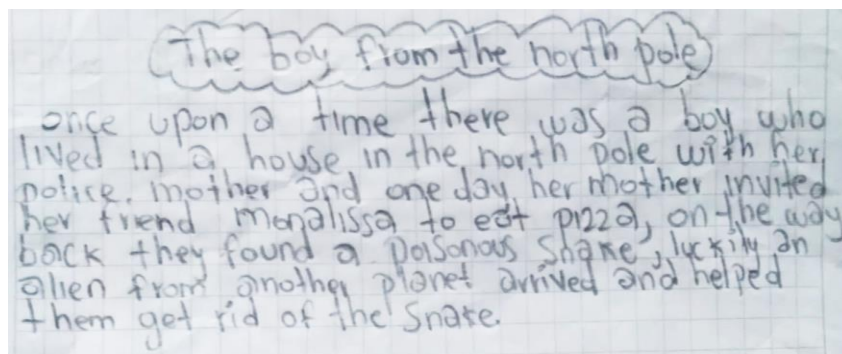 The boy from the north pole
once upon a time there was a boy who
lived in a house in the north pole with her
police. mother and one day her mother invited
her friend monalissa to eat pizza, on the way
back they found a poisonous snake, luckily an
alien from another planet arrived and helped
them get rid of the snake.